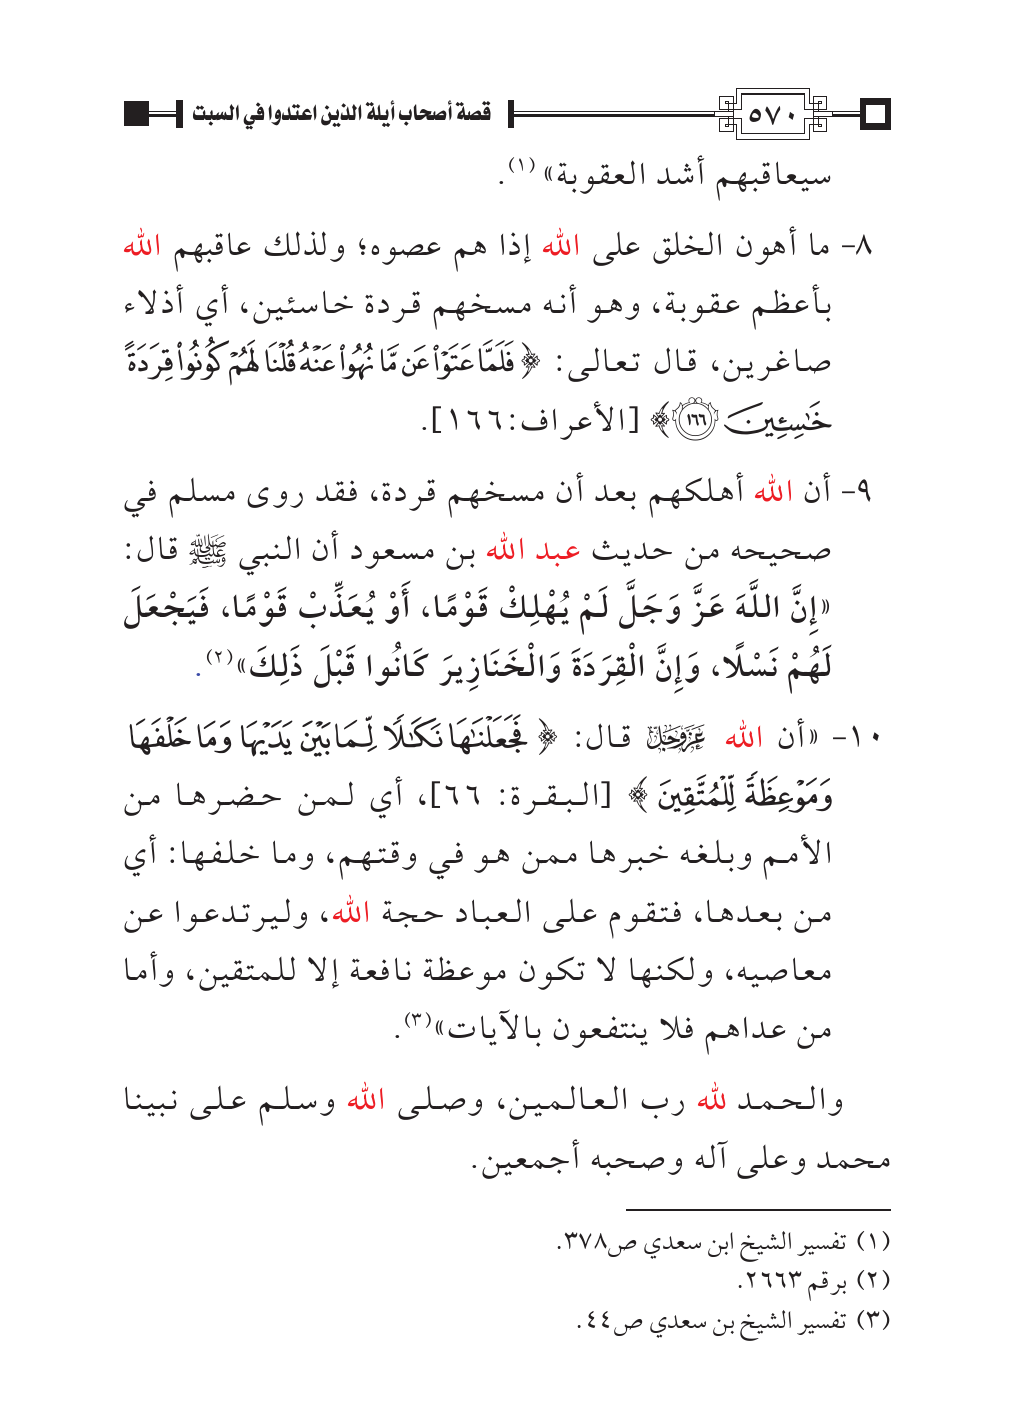 ٥٧٠
قصة أصحاب أيلة الذين اعتدوا في السبت
سيعاقبهم أشد العقوبة»(١).
٨- ما أهون الخلق على الله إذا هم عصوه؛ ولذلك عاقبهم الله
بأعظم عقوبة، وهو أنه مسخهم قردة خاسئين، أي أذلاء
صاغرين، قال تعالى: ﴿فَلَمَّا عَتَوْاْ عَن مَّا نُهُواْ عَنْهُ قُلْنَا لَهُمْ كُونُواْ قِرَدَةً
خَٰسِـِٔينَ ١٦٦﴾ [الأعراف:١٦٦].
٩- أن الله أهلكهم بعد أن مسخهم قردة، فقد روى مسلم في
صحيحه من حديث عبد الله بن مسعود أن النبي ﷺ قال:
«إِنَّ اللَّهَ عَزَّ وَجَلَّ لَمْ يُهْلِكْ قَوْمًا، أَوْ يُعَذِّبْ قَوْمًا، فَيَجْعَلَ
لَهُمْ نَسْلًا، وَإِنَّ الْقِرَدَةَ وَالْخَنَازِيرَ كَانُوا قَبْلَ ذَلِكَ»(٢).
١٠- «أن الله عَزَّوَجَلَّ قال: ﴿فَجَعَلْنَٰهَا نَكَٰلًا لِّمَا بَيْنَ يَدَيْهَا وَمَا خَلْفَهَا
وَمَوْعِظَةً لِّلْمُتَّقِينَ﴾ [البقرة: ٦٦]، أي لمن حضرها من
الأمم وبلغه خبرها ممن هو في وقتهم، وما خلفها: أي
من بعدها، فتقوم على العباد حجة الله، وليرتدعوا عن
معاصيه، ولكنها لا تكون موعظة نافعة إلا للمتقين، وأما
من عداهم فلا ينتفعون بالآيات»(٣).
والحمد لله رب العالمين، وصلى الله وسلم على نبينا
محمد وعلى آله وصحبه أجمعين.
(١) تفسير الشيخ ابن سعدي ص٣٧٨.
(٢) برقم ٢٦٦٣.
(٣) تفسير الشيخ بن سعدي ص٤٤.